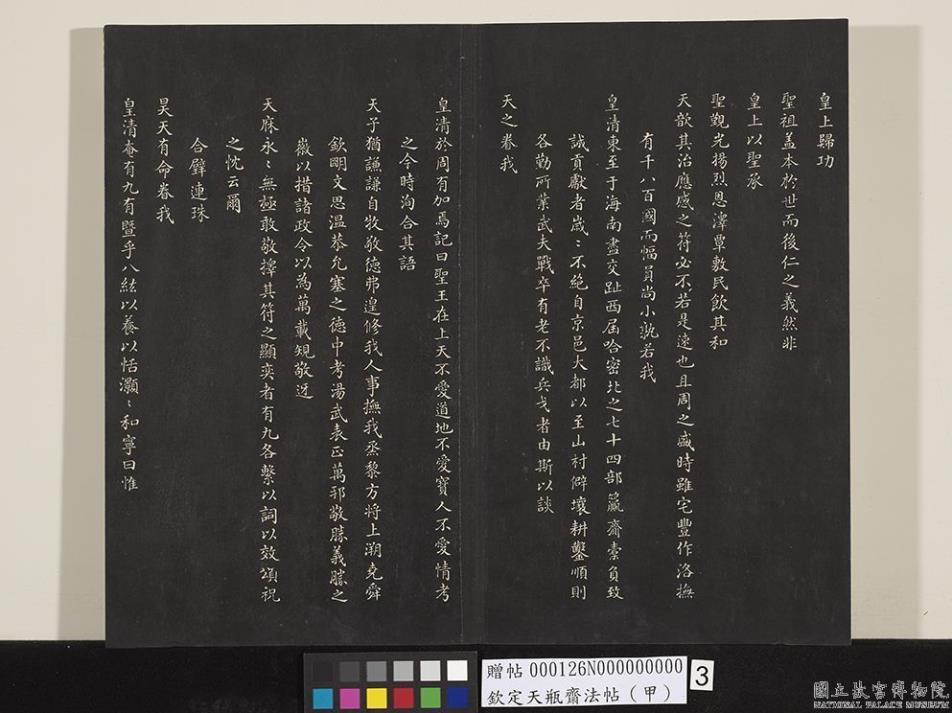 皇上歸功
聖祖盖本於世而後仁之義然非
皇上以聖承
聖觀光揚烈恩澤覃敷民飲其和
天歆其治應感之符必不若是速也且周之盛時雖宅豐作洛撫
有千八百國而幅員尚小孰若我
皇清東至于海南盡交趾西届哈密北之七十四部籯齎橐負致
誠貢獻者歲〻不絕自京邑大都以至山村僻壤耕鑿順則
各勤所業武夫戰卒有老不識兵戈者由斯以談
天之眷我
皇清於周有加焉記曰聖王在上天不愛道地不愛寶人不愛情考
之今時洵合其語
天子猶謙謙自牧敬德弗遑修我人事撫我烝黎方将上溯堯舜
欽明文思温恭允塞之德中考湯武表正萬邦敬勝義勝之
微以措諸政令以為萬載䂓敬迓
天庥永〻無極敢敬擇其符之顯奕者有九各繫以詞以效頌祝
之忱云爾
合璧連珠
昊天有命眷我
皇清奄有九有暨乎八紘以養以恬灝〻和寧曰惟
贈帖 000126N000000000
欽定天瓶齋法帖（甲）
3
國立故宮博物院
NATIONAL PALACE MUSEUM